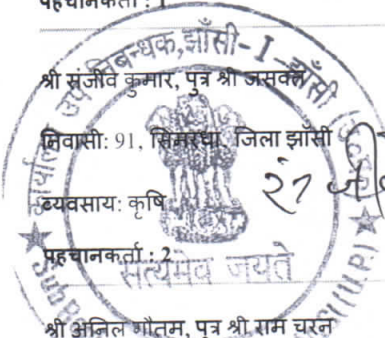 पहचानकर्ता : 1
श्री संजीव कुमार, पुत्र श्री जसवन्त
निवासी: 91, सिमरधा, जिला झाँसी
व्यवसाय: कृषि
पहचानकर्ता : 2
श्री अनिल गौतम, पुत्र श्री राम चरन
कार्यालय उप निबन्धक, झाँसी-I झाँसी (उ०प्र०)
सत्यमेव जयते
(U.P.)